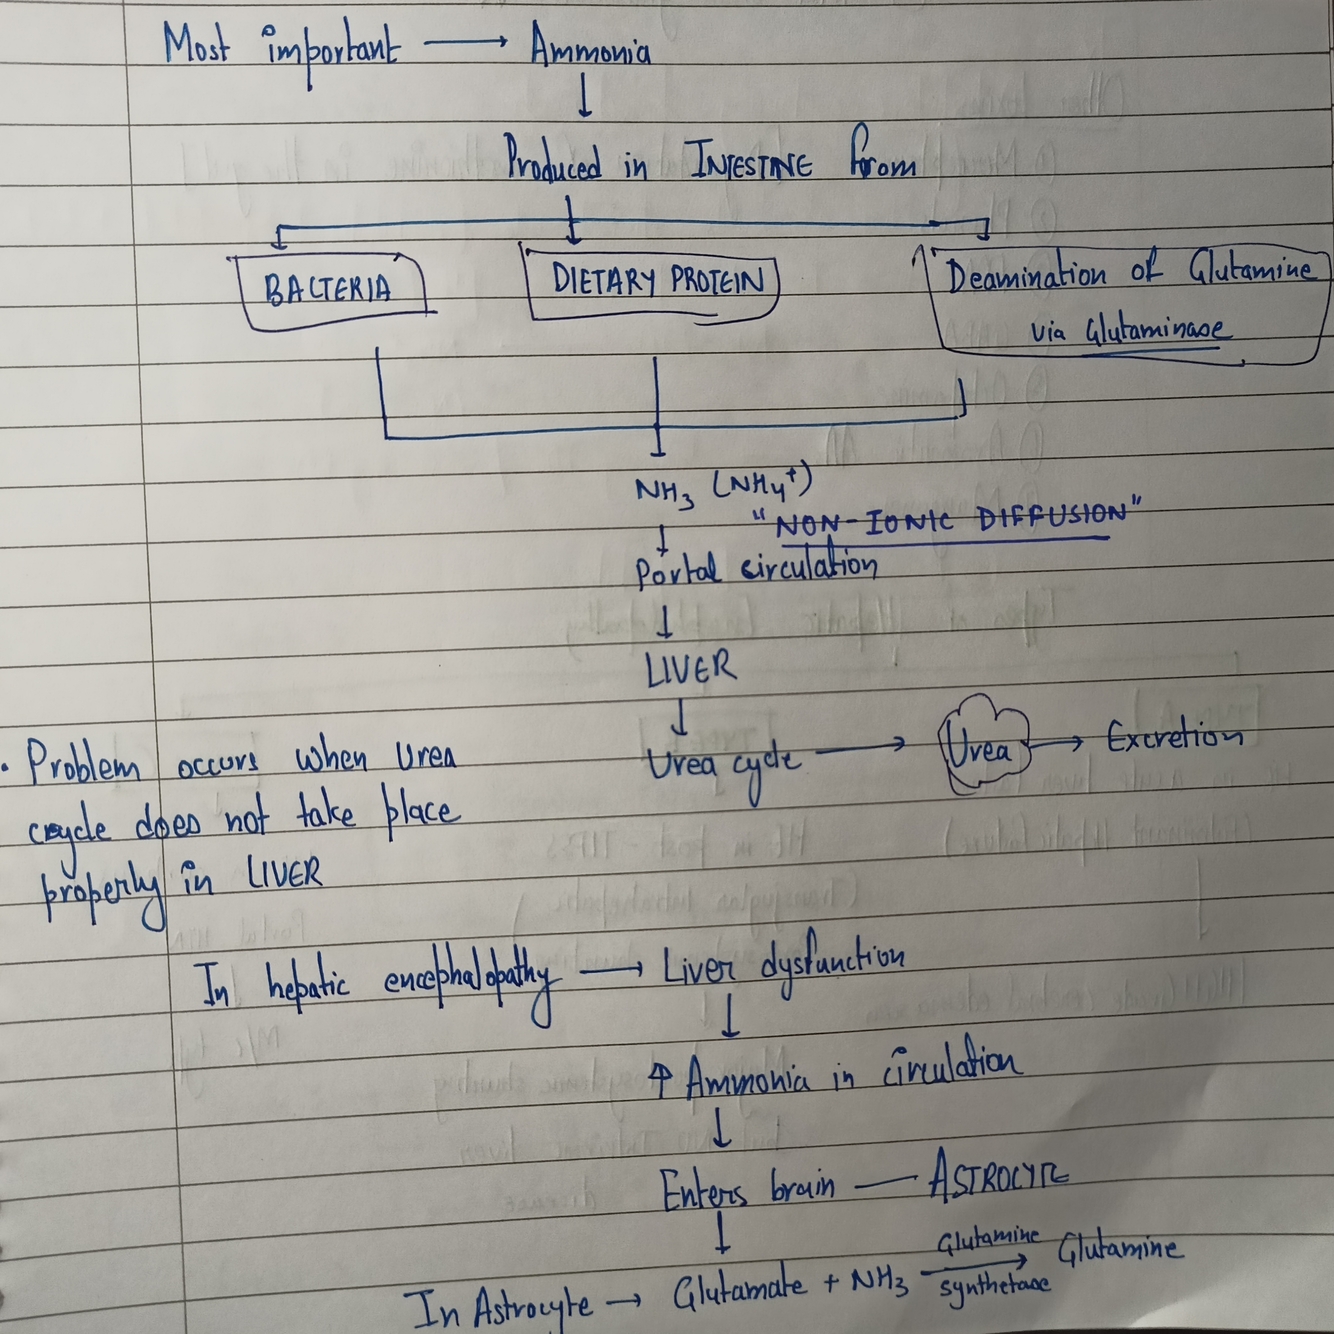 Most important → Ammonia
↓
Produced in INTESTINE from
BACTERIA
DIETARY PROTEIN
Deamination of Glutamine
via Glutaminase
NH3 (NH4+)
"NON-IONIC DIFFUSION"
↓
Portal circulation
↓
LIVER
↓
Urea cycle → Urea → Excretion
. Problem occurs when Urea
cycle does not take place
properly in LIVER
In hepatic encephalopathy → Liver dysfunction
↓
↑ Ammonia in circulation
↓
Enters brain — ASTROCYTE
↓
In Astrocyte → Glutamate + NH3 Glutamine synthetase → Glutamine